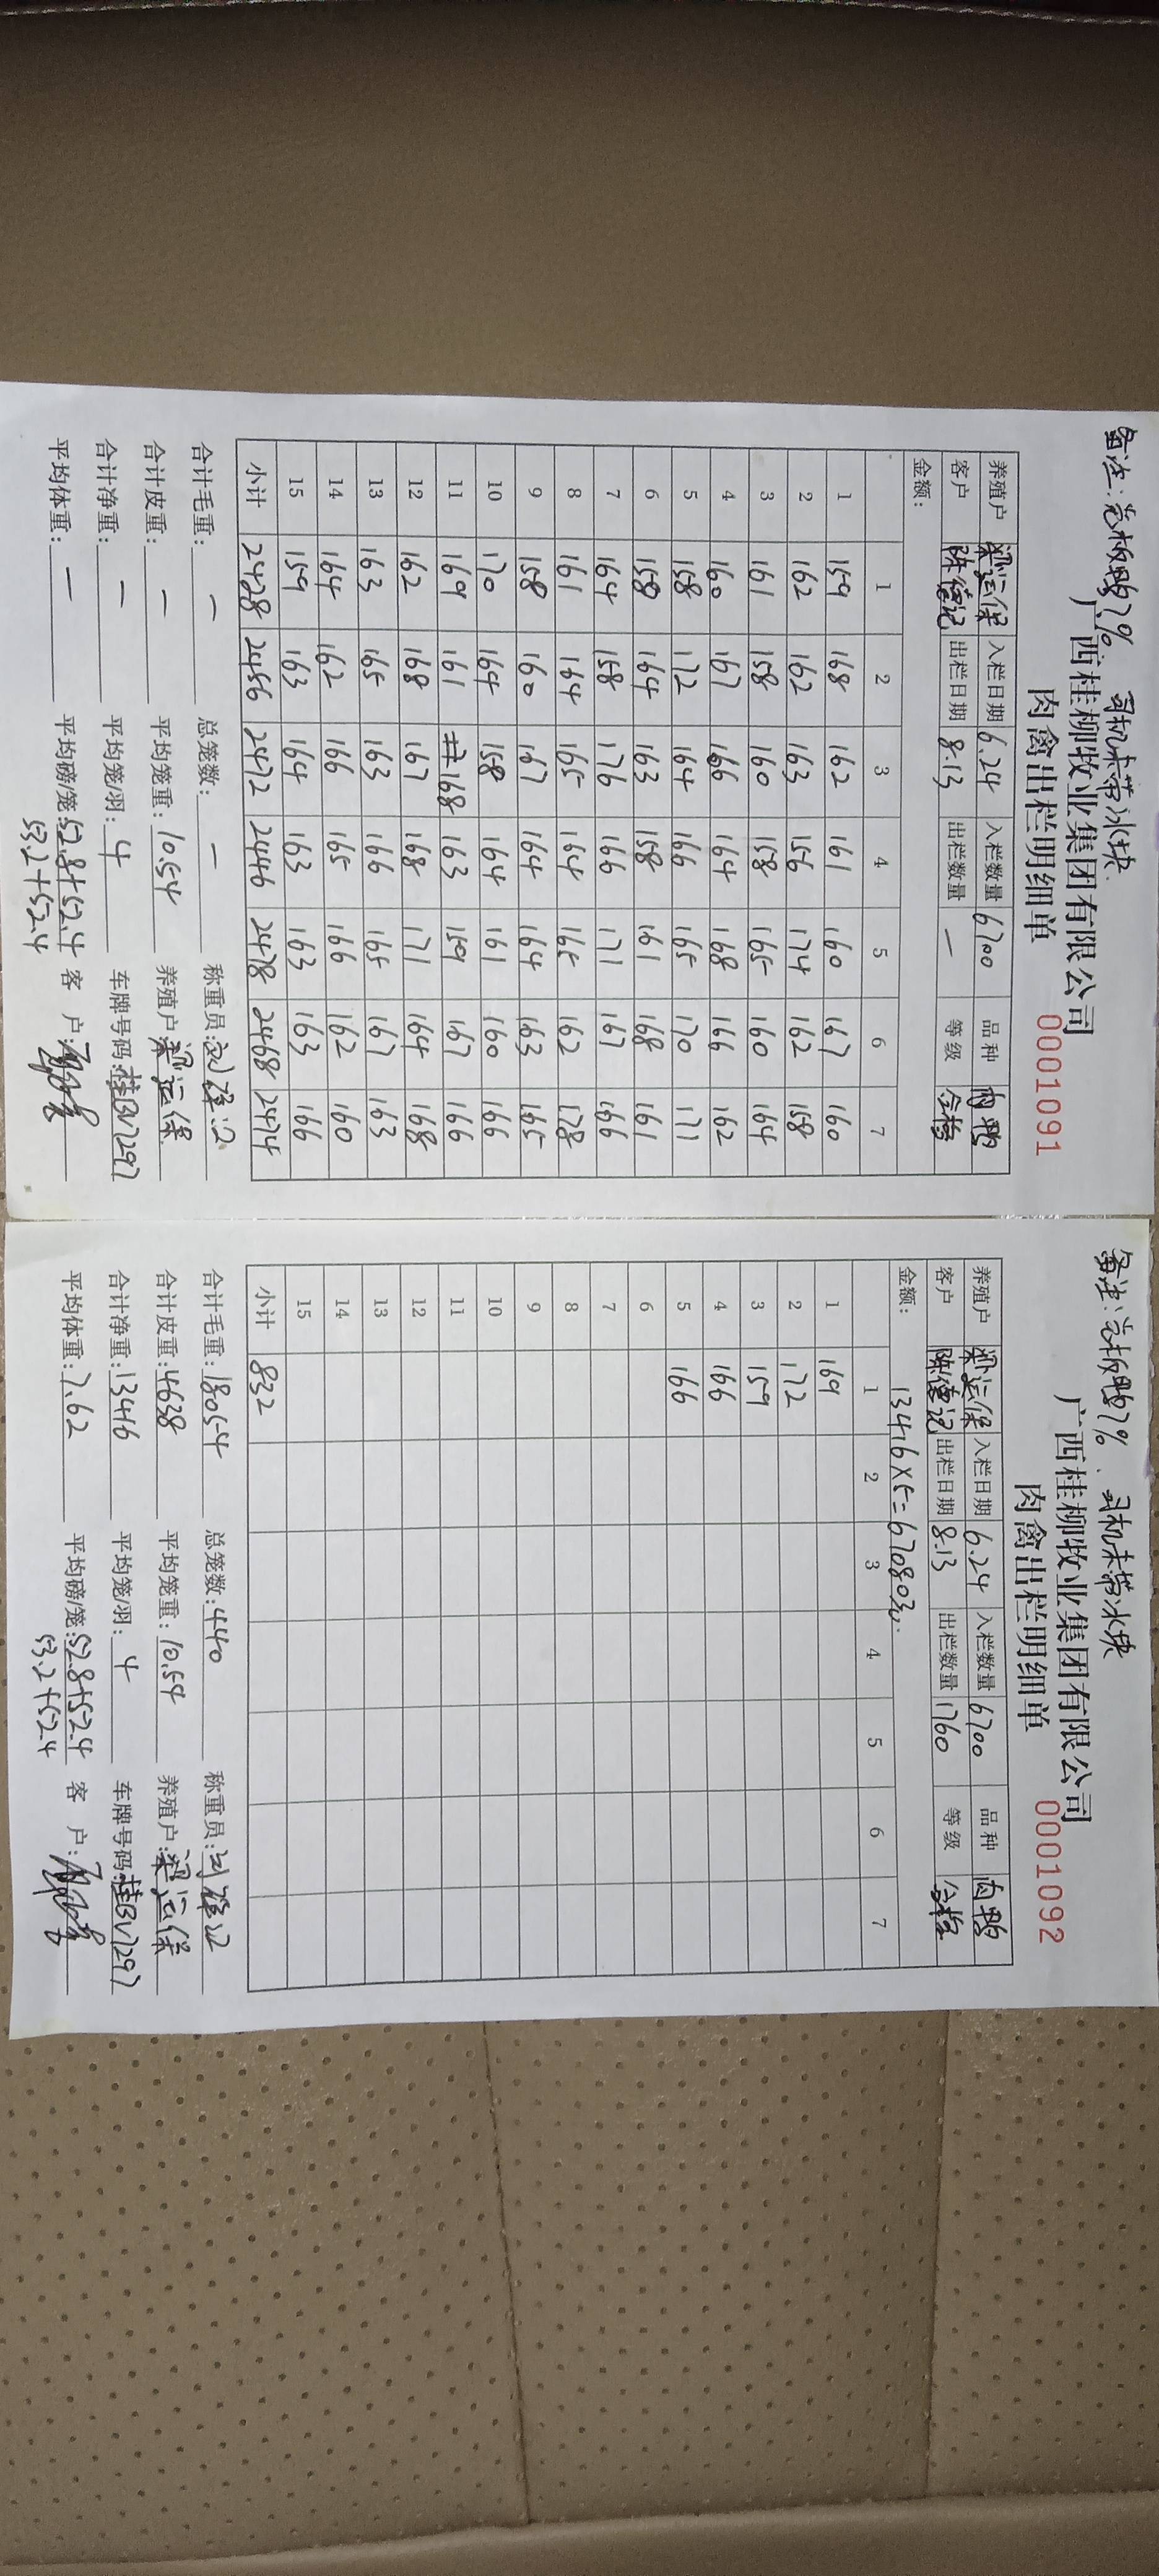 备注:总板鸭7%. 司机未带冰块.
广西桂柳牧业集团有限公司
肉禽出栏明细单 0001091
养殖户 梁运保 入栏日期 6.24 入栏数量 6700 品种 肉鸭
客户 陈德记 出栏日期 8.13 出栏数量 — 等级 合格
金额:
1 2 3 4 5 6 7
1 159 168 162 161 160 167 160
2 162 162 163 156 174 162 158
3 161 158 160 158 165 160 164
4 160 167 166 164 168 166 162
5 158 172 164 166 165 170 171
6 158 164 163 158 161 168 161
7 164 158 176 166 171 167 166
8 161 164 165 164 165 162 178
9 158 160 167 164 164 163 165
10 170 164 158 164 161 160 166
11 169 161 168 163 159 167 166
12 162 168 167 168 171 164 168
13 163 165 163 166 165 167 163
14 164 162 166 165 166 162 160
15 159 163 164 163 163 163 166
小计 2428 2456 2472 2446 2478 2468 2474
合计毛重: — 总笼数: — 称重员:
合计皮重: — 平均笼重: 10.54 养殖户: 梁运保
合计净重: — 平均笼/羽: 4 车牌号码: 桂BV7297
平均体重: — 平均磅/笼: 52.8+52.4 客 户:
53.2+52.4
备注:总板鸭7%. 司机未带冰块
广西桂柳牧业集团有限公司
肉禽出栏明细单 0001092
养殖户 梁运保 入栏日期 6.24 入栏数量 6700 品种 肉鸭
客户 陈德记 出栏日期 8.13 出栏数量 1760 等级 合格
金额: 13416×5=67080元.
1 2 3 4 5 6 7
1 169
2 172
3 159
4 166
5 166
6
7
8
9
10
11
12
13
14
15
小计 832
合计毛重: 18054 总笼数: 440 称重员:
合计皮重: 4638 平均笼重: 10.54 养殖户: 梁运保
合计净重: 13416 平均笼/羽: 4 车牌号码: 桂BV7297
平均体重: 7.62 平均磅/笼: 52.8+52.4 客 户:
53.2+52.4